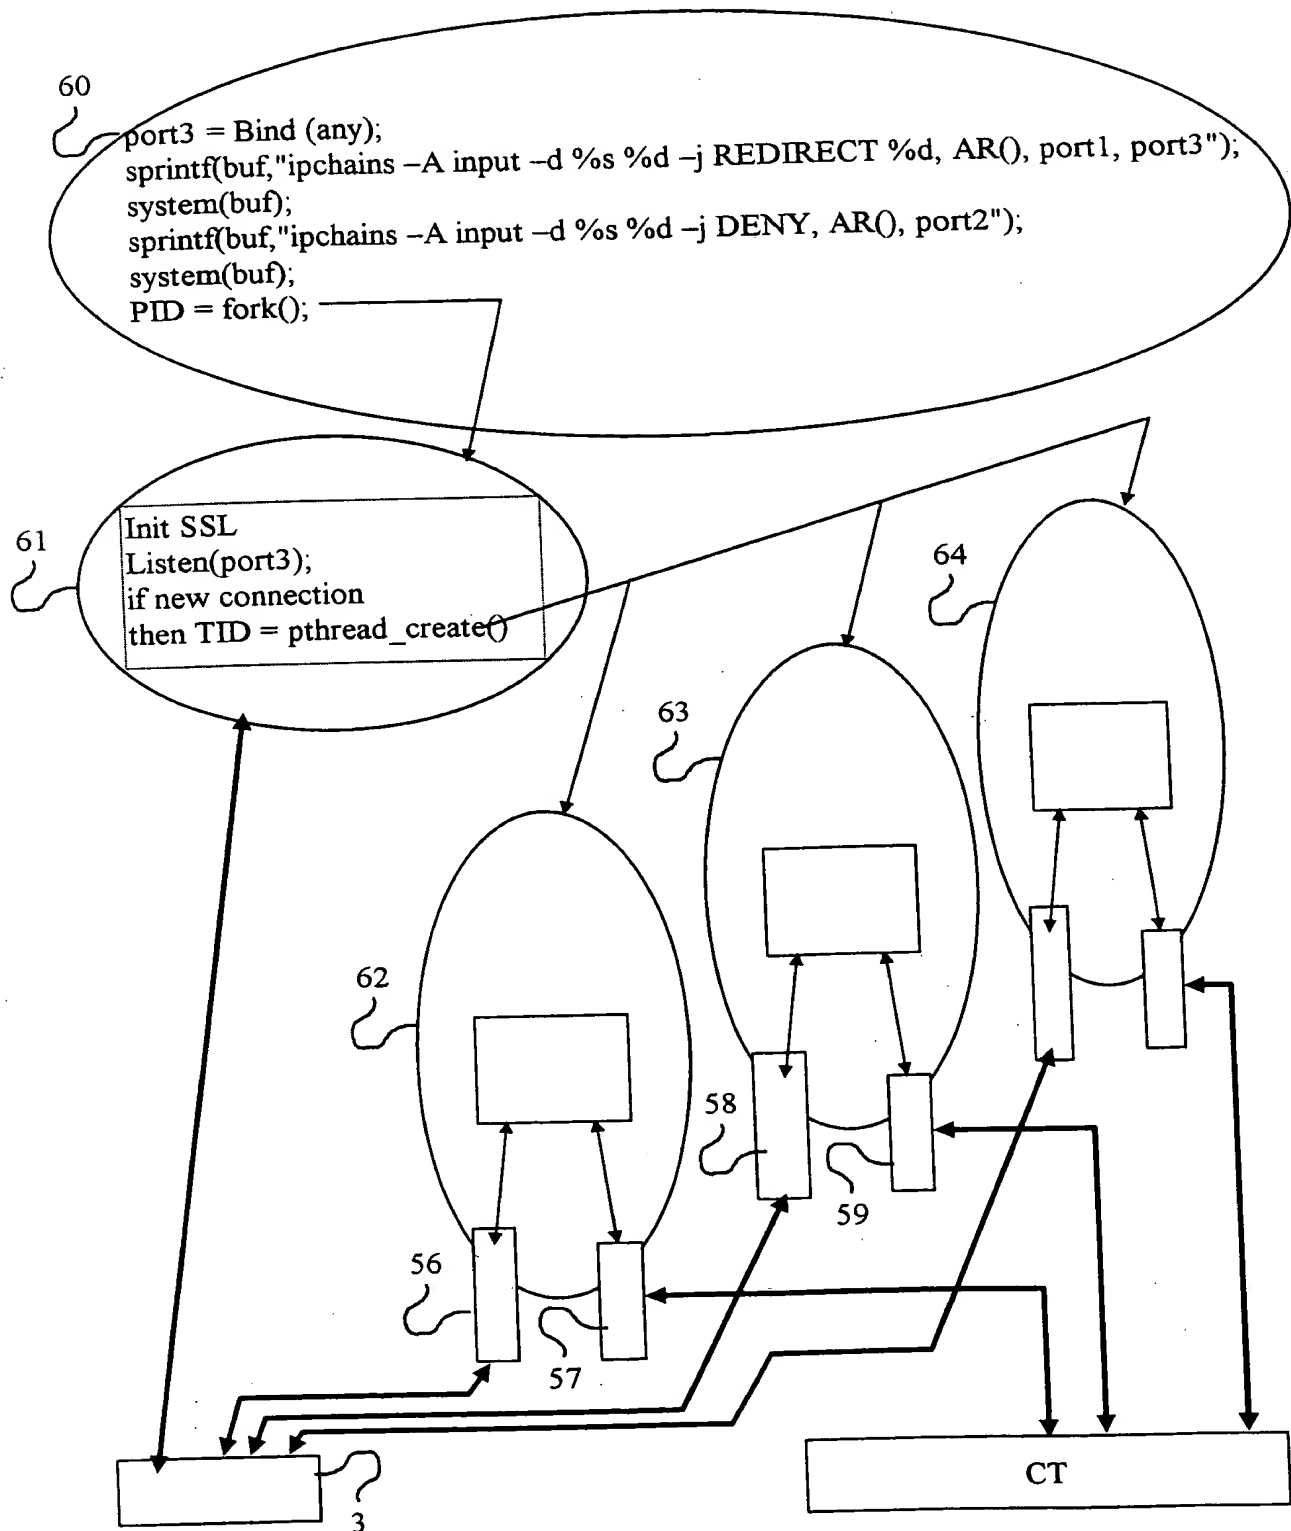 60
port3 = Bind (any);
sprintf(buf,"ipchains –A input –d %s %d –j REDIRECT %d, AR(), port1, port3");
system(buf);
sprintf(buf,"ipchains –A input –d %s %d –j DENY, AR(), port2");
system(buf);
PID = fork();
61
Init SSL
Listen(port3);
if new connection
then TID = pthread_create()
64
63
62
58
59
56
57
3
CT